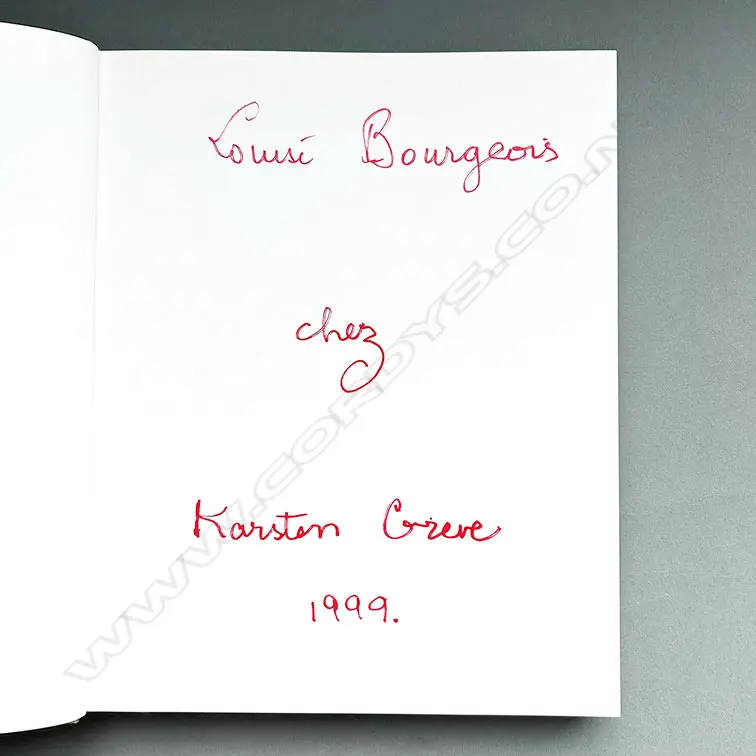 Louise Bourgeois
chez
Karsten Greve
1999.
WWW.CORDYS.CO.N